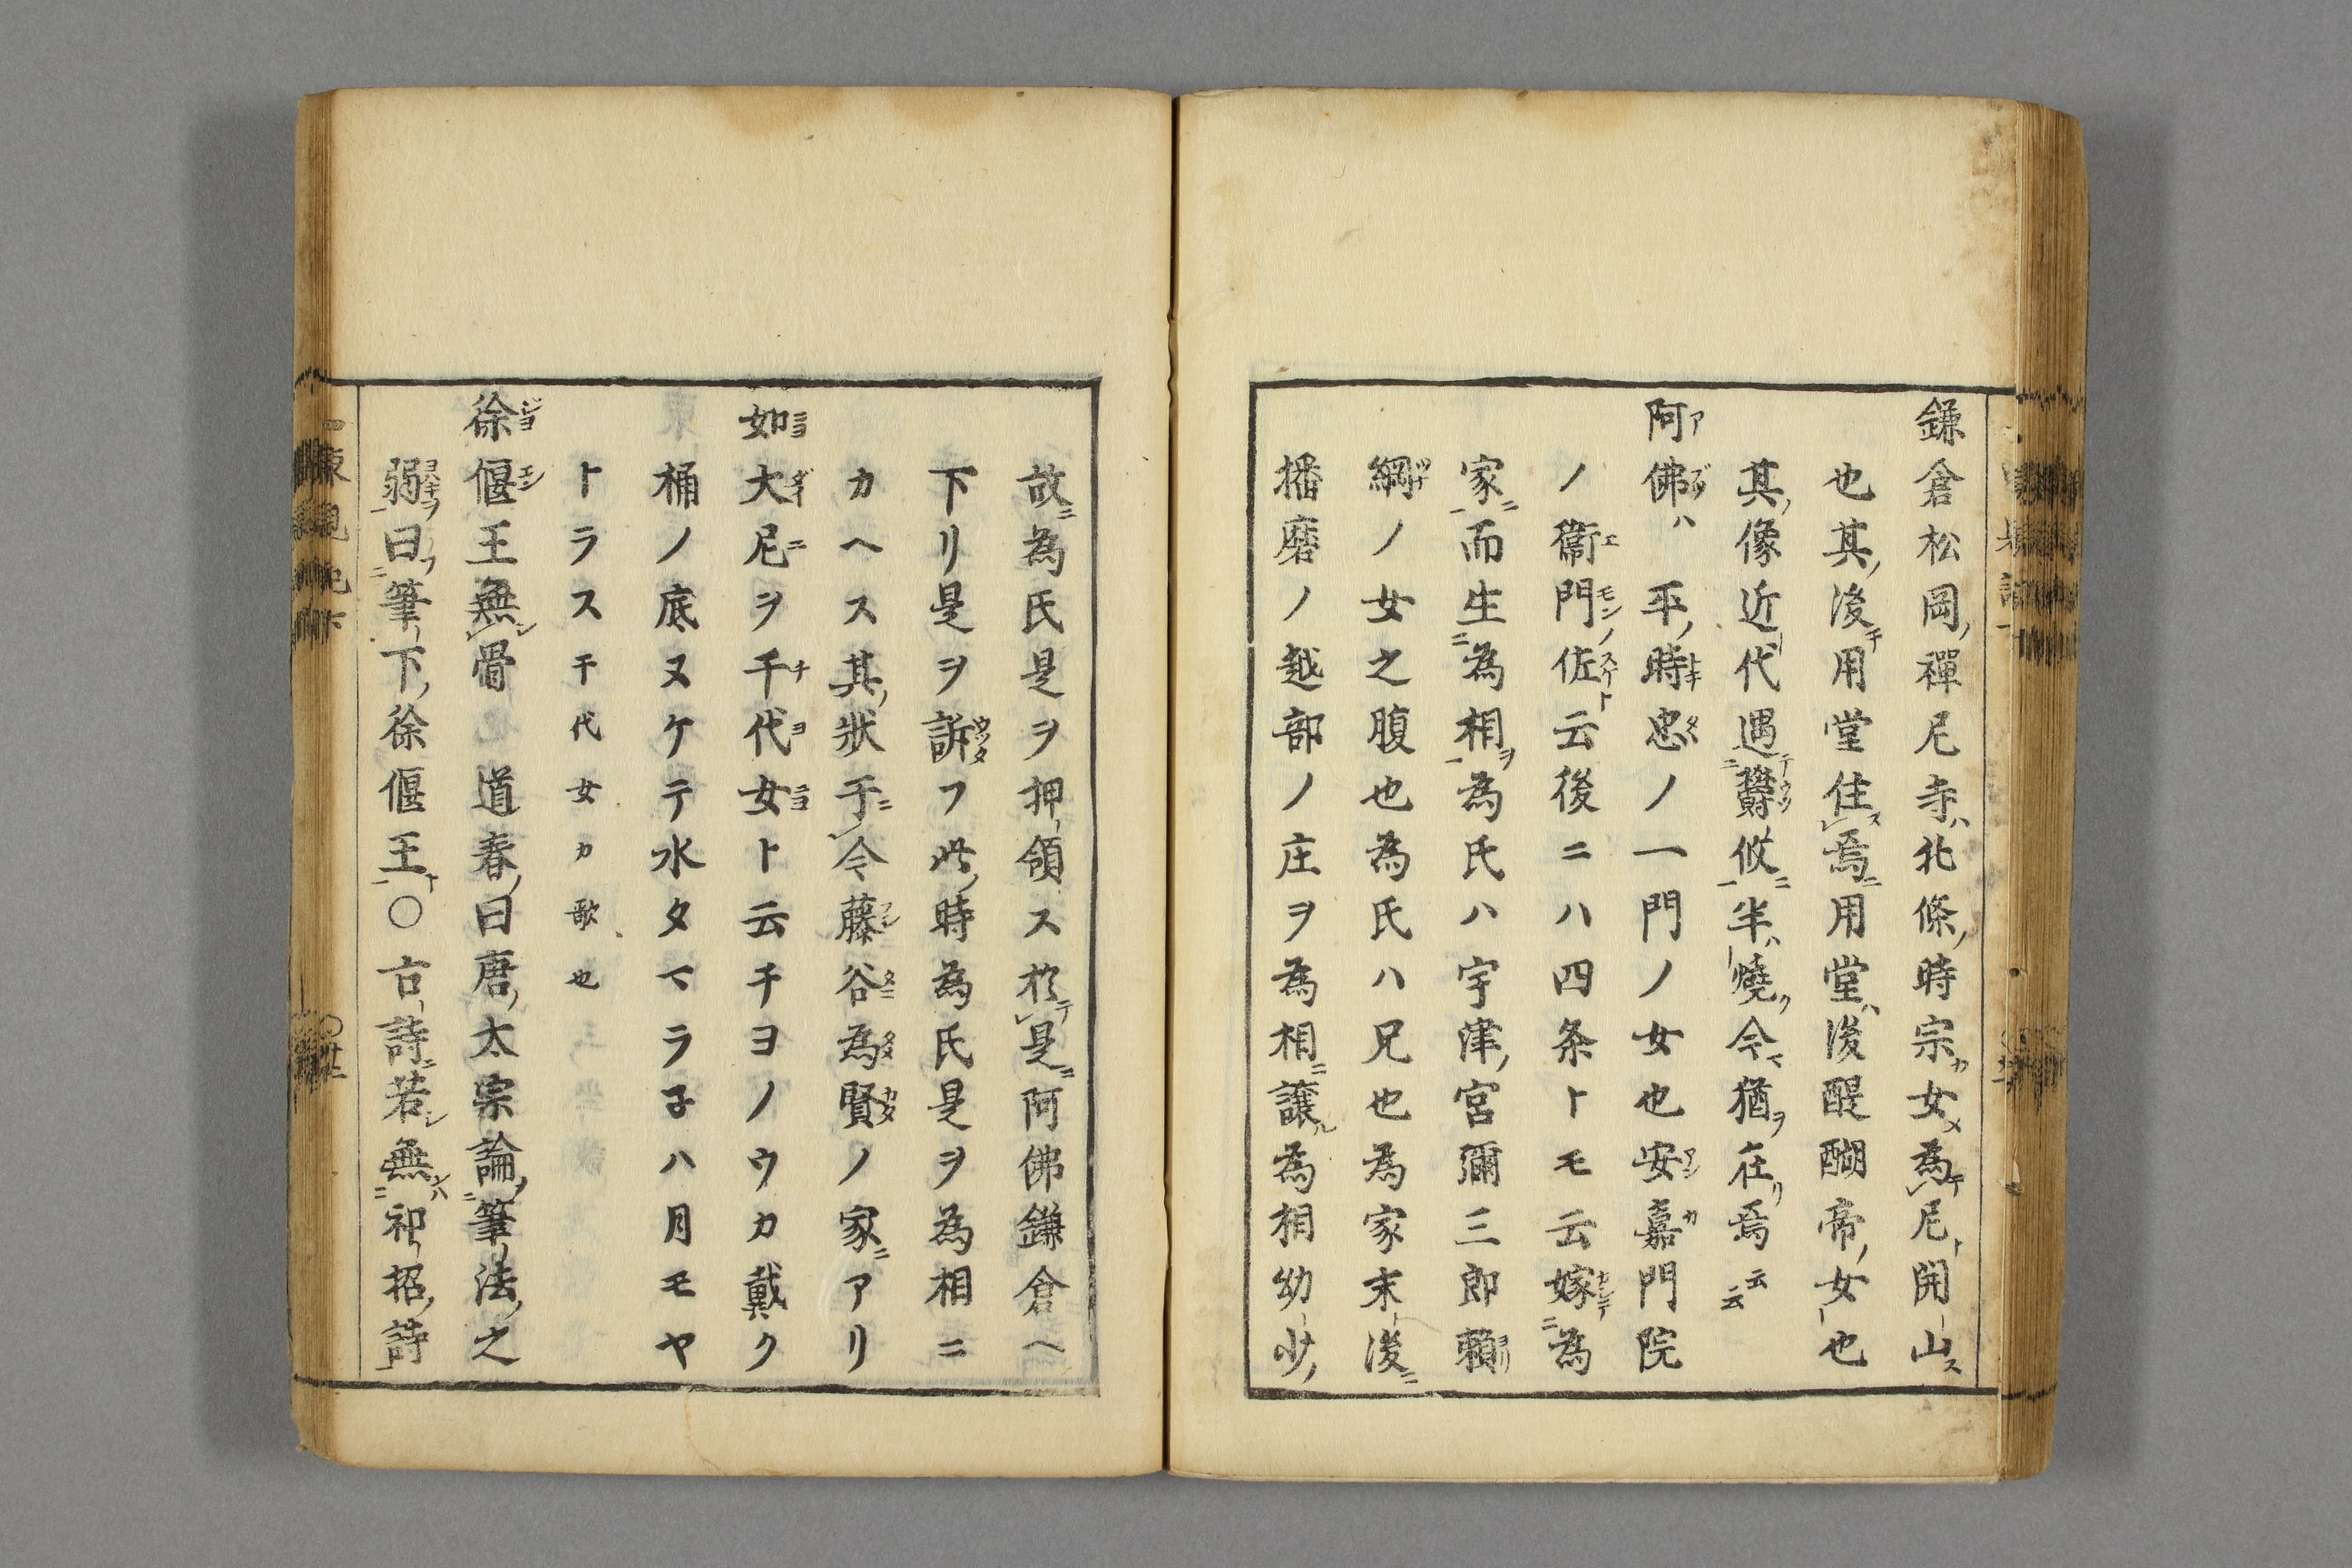 鎌倉松岡ノ禪尼寺ハ北條ノ時宗カ女メ為テ尼ト開山ス
也其ノ後チ用堂住ス焉ニ用堂ハ後醍醐帝ノ女也
其ノ像近代遇テ欝攸ニ半ハ燒ク今マ猶ヲ在リ焉云云
阿佛ハ平ノ時忠ノ一門ノ女也安嘉門院
ノ衞門佐ト云後ニハ四条トモ云嫁為
家ニ而生為相ヲ為氏ハ宇津ノ宮彌三郎賴
綱ノ女之腹也為氏ハ兄也為家末後ニ
播磨ノ越部ノ庄ヲ為相ニ讓ル為相幼少ノ
故ニ為氏是ヲ押領ス於テ是ニ阿佛鎌倉ヘ
下リ是ヲ訴フ此ノ時為氏是ヲ為相ニ
カヘス其ノ狀于ニ今藤谷為賢ノ家ニアリ
如大尼ヲ千代女ト云チヨノウカ戴ク
桶ノ底ヌケテ水タマラ子ハ月モヤ
トラス千代女カ歌也
徐偃王無骨 道春ノ曰唐ノ太宗論ノ筆法ノ之
弱ヲ曰筆下ノ徐偃王ト〇古詩ニ若無ンハ祁招ノ詩